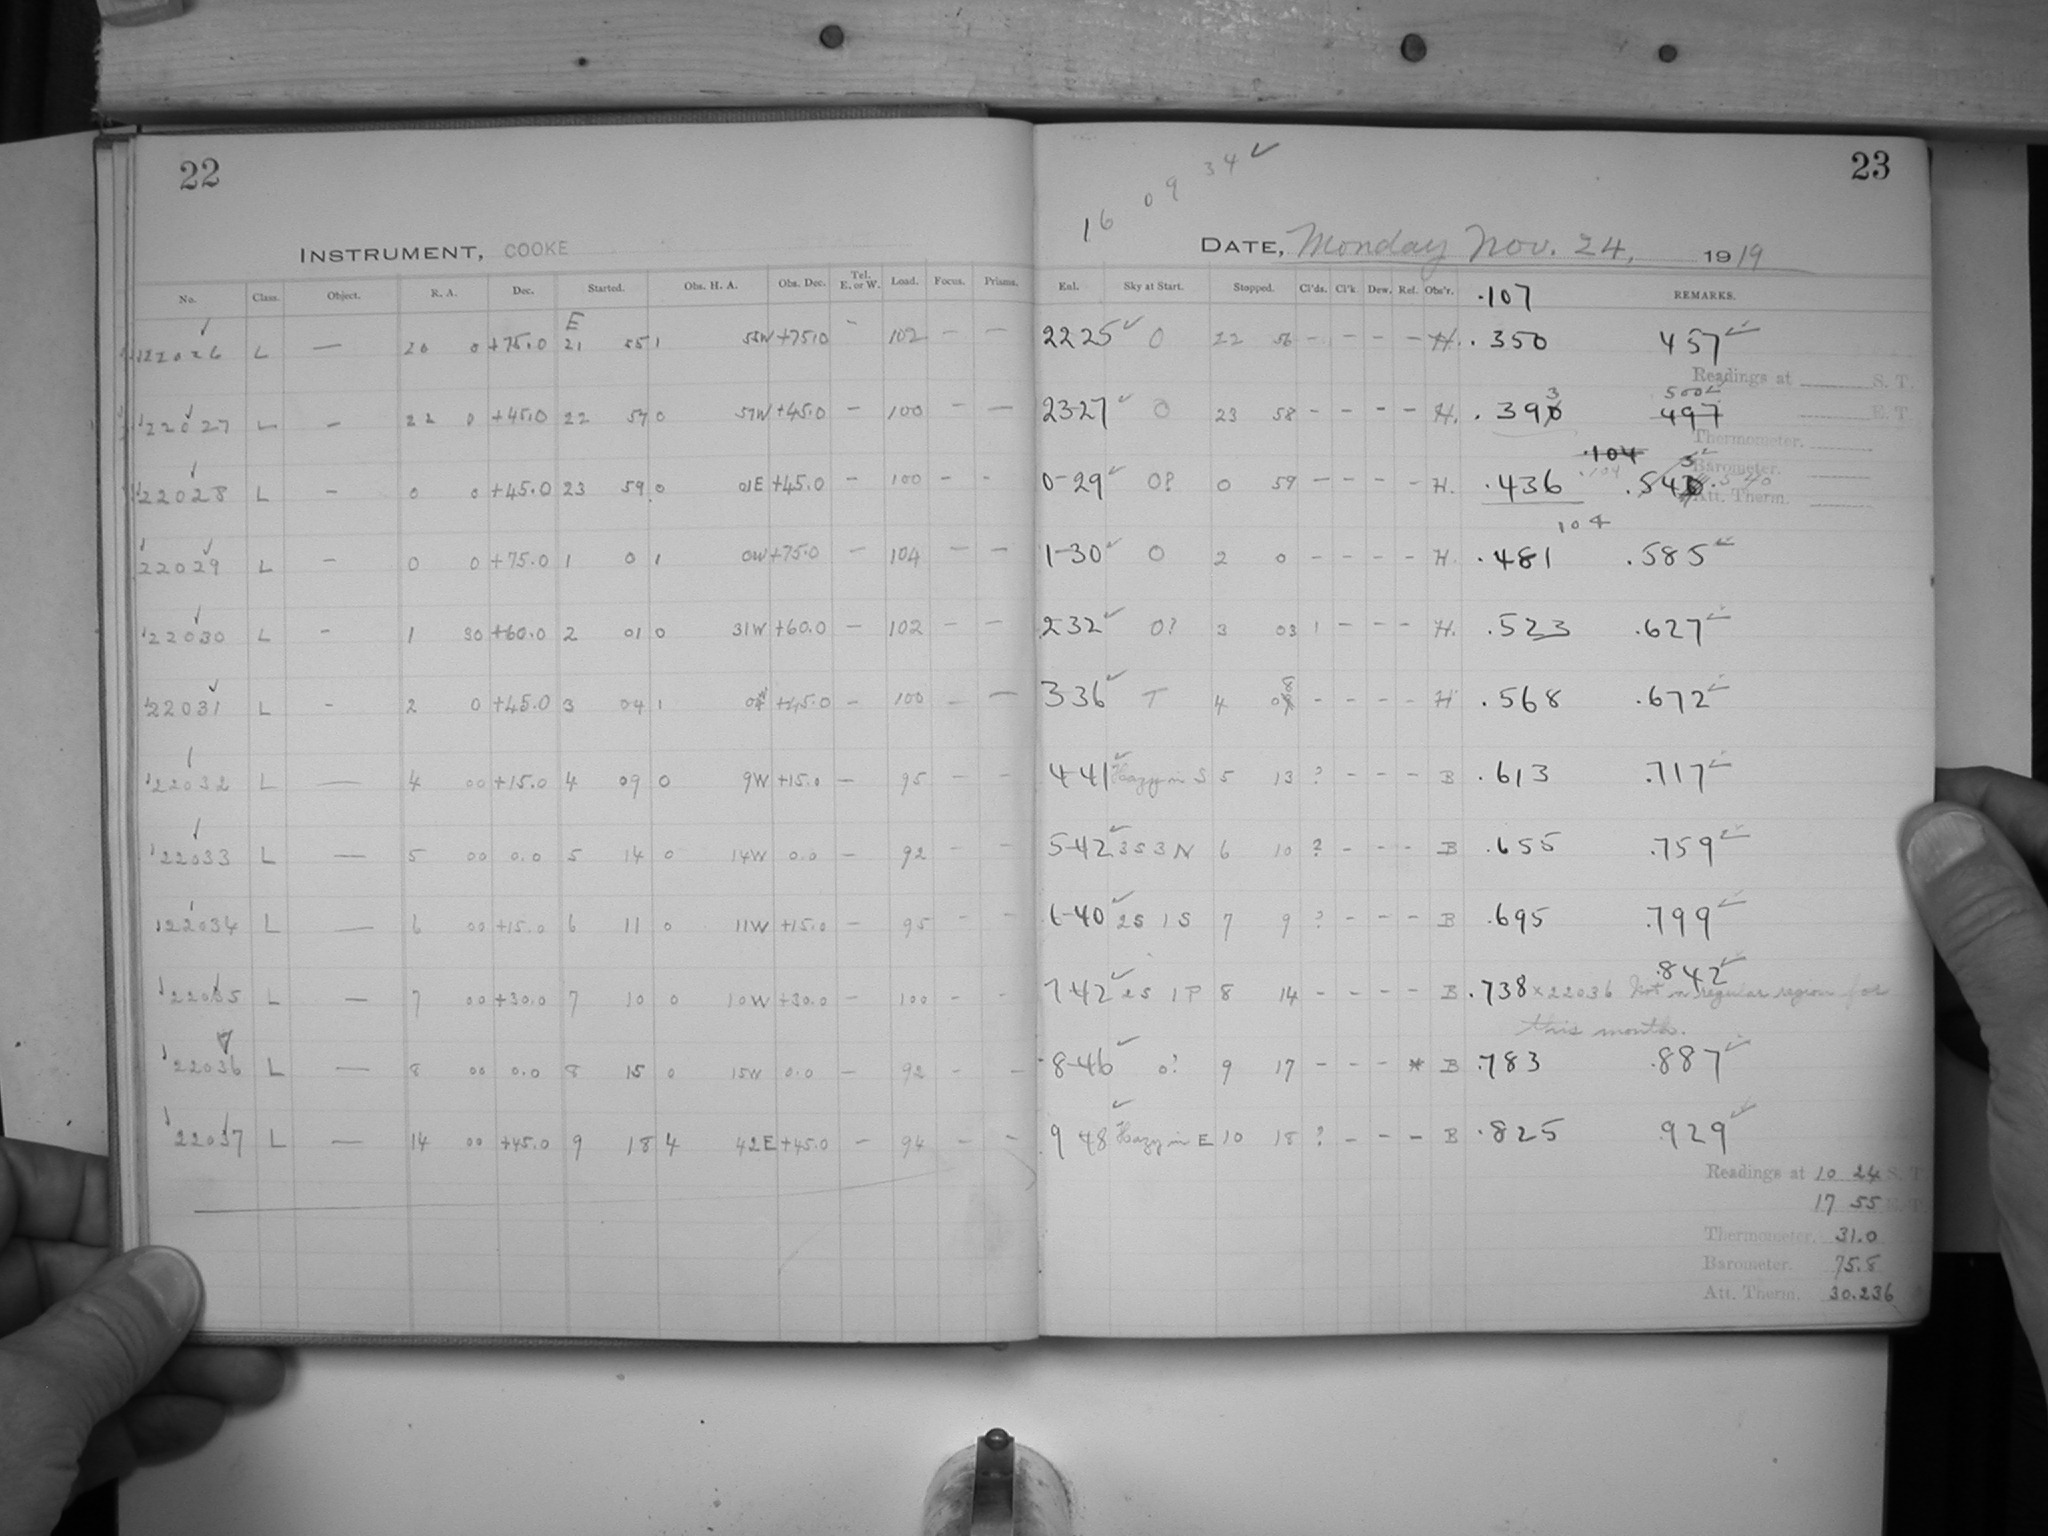 22
23
16 09 34 ✓
INSTRUMENT, COOKE
DATE, Monday Nov. 24, 1919
No. Class. Object. R. A. Dec. Started. Obs. H. A. Obs. Dec. Tel. E. or W. Load. Focus. Prisms. Eul. Sky at Start. Stopped. Cl'ds. Cl'k Dew. Ref. Obs'r. .107 REMARKS.
E
22026 L — 20 0 +75.0 21 55 1 55W +75.0 - 102 - - 2225 ✓ 0 22 56 - - - - H. .350 457 ✓
Readings at S. T.
3 500 ✓
22027 L - 22 0 +45.0 22 57 0 57W +45.0 - 100 - - 23-27 ✓ 0 23 58 - - - - H. .390 497 E. T.
Thermometer.
.104
Barometer.
22028 L - 0 0 +45.0 23 59 0 01E +45.0 - 100 - - 0-29 ✓ 0? 0 59 - - - - H. .436
Att. Therm.
104
22029 L - 0 0 +75.0 1 0 1 0W +75.0 - 104 - - 1-30 ✓ 0 2 0 - - - - H. .481 .585 ✓
22030 L - 1 30 +60.0 2 01 0 31W +60.0 - 102 - - 2-32 ✓ 0? 3 03 1 - - - H. .523 .627 ✓
22031 L - 2 0 +45.0 3 04 1 +45.0 - 100 - - 3-36 ✓ T 4 08 - - - - H .568 .672 ✓
22032 L — 4 00 +15.0 4 09 0 9W +15.0 - 95 - - 4-41 ✓ Hazy in S 5 13 ? - - - B .613 .717 ✓
22033 L — 5 00 0.0 5 14 0 14W 0.0 - 92 - - 5-42 ✓ 3S 3N 6 10 ? - - - B .655 .759 ✓
22034 L — 6 00 +15.0 6 11 0 11W +15.0 - 95 - - 6-40 ✓ 2S 1S 7 9 ? - - - B .695 .799 ✓
22035 L — 7 00 +30.0 7 10 0 10W +30.0 - 100 - - 7-42 ✓ 2S 1P 8 14 - - - - B .738 .842 ✓
×22036 Not in regular region for
this month.
22036 L — 8 00 0.0 8 15 0 15W 0.0 - 92 - - 8-46 ✓ 0? 9 17 - - - * B .783 .887 ✓
22037 L — 14 00 +45.0 9 18 4 42E +45.0 - 94 - - 9 48 ✓ Hazy in E 10 18 ? - - - B .825 .929 ✓
Readings at 10 24 S. T.
17 55 E. T.
Thermometer. 31.0
Barometer. 75.8
Att. Therm. 30.236